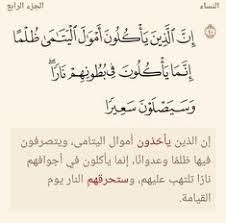 النساء
الجزء الرابع
إِنَّ ٱلَّذِينَ يَأۡكُلُونَ أَمۡوَٰلَ ٱلۡيَتَٰمَىٰ ظُلۡمًا
إِنَّمَا يَأۡكُلُونَ فِي بُطُونِهِمۡ نَارٗاۖ
وَسَيَصۡلَوۡنَ سَعِيرٗا
إن الذين يأخذون أموال اليتامى، ويتصرفون
فيها ظلمًا وعدوانًا، إنما يأكلون في أجوافهم
نارًا تلتهب عليهم، وستحرقهم النار يوم
القيامة.